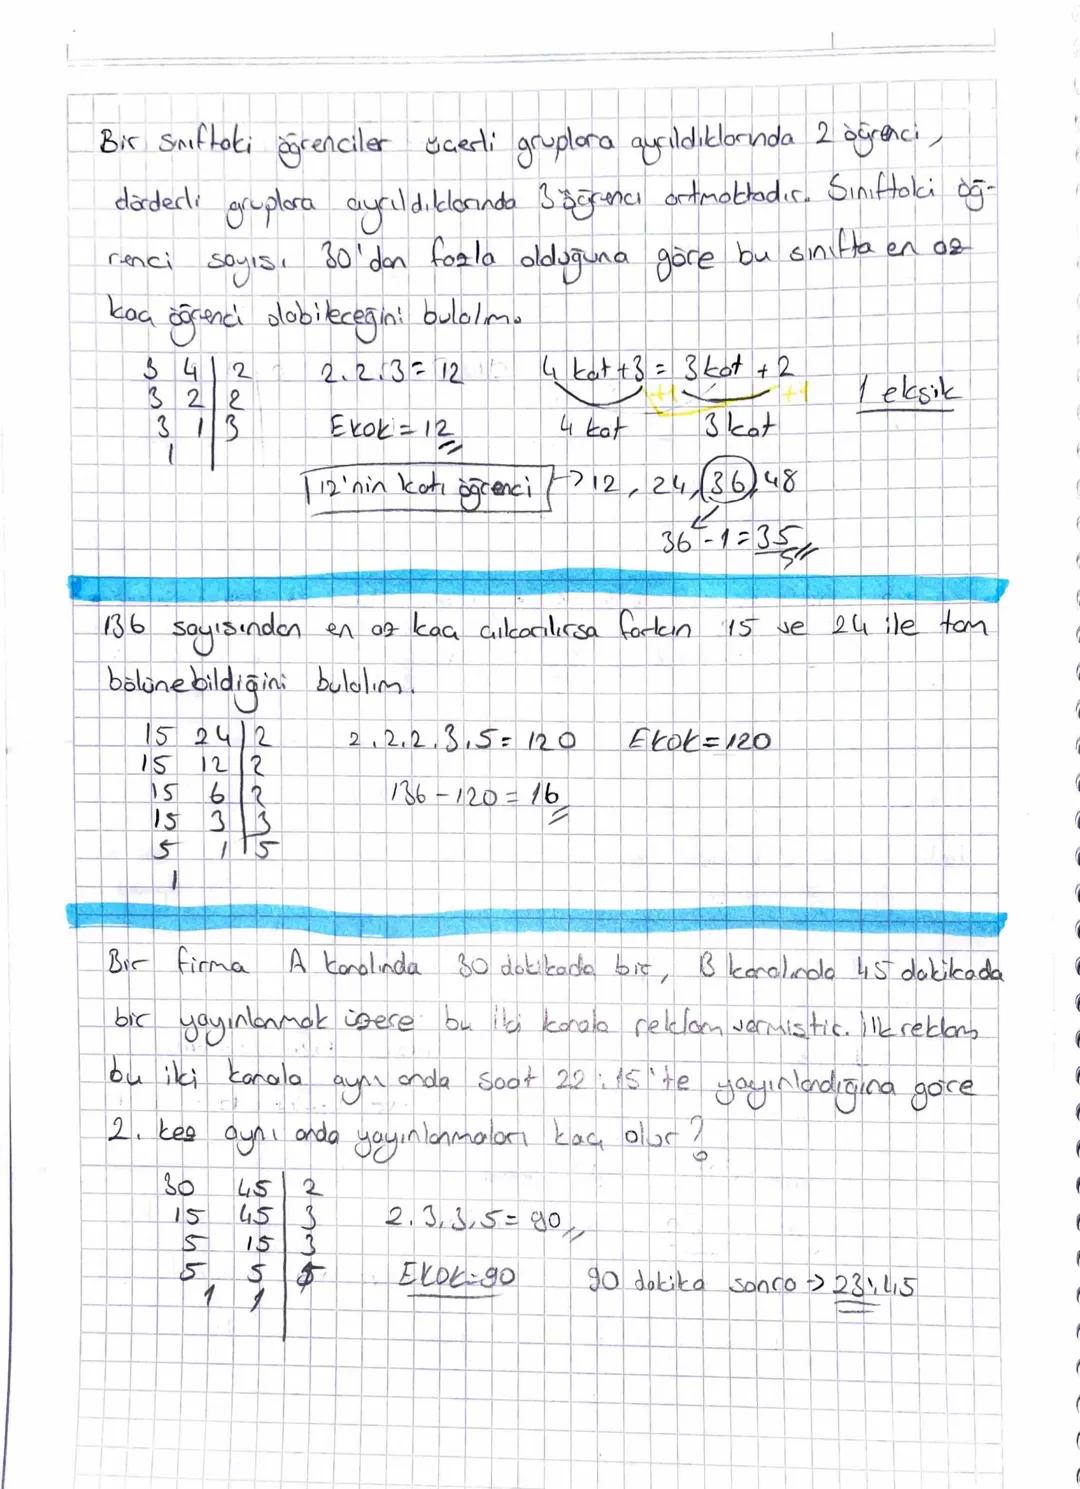 Bir sınıftaki öğrenciler üçerli gruplara ayrıldıklarında 2 öğrenci,
dörderli gruplara ayrıldıklarında 3 öğrenci artmaktadır. Sınıftaki öğ-
renci sayısı 30'dan fazla olduğuna göre bu sınıfta en az
kaç öğrenci olabileceğini bulalım.
3 4 | 2 2.2.3=12 4 kat+3 = 3 kat + 2
3 2 | 2 +1 +1 1 eksik
3 1 | 3 Ekok=12 4 kat 3 kat
1
12'nin katı öğrenci → 12, 24, 36, 48
36-1=35
136 sayısından en az kaç çıkarılırsa farkın 15 ve 24 ile tam
bölünebildiğini bulalım.
15 24 | 2 2.2.2.3.5=120 EKOK=120
15 12 | 2
15 6 | 2 136-120=16
15 3 | 3
5 1 | 5
1
Bir firma A kanalında 30 dakikada bir, B kanalında 45 dakikada
bir yayınlanmak üzere bu iki kanala reklam vermiştir. İlk reklam
bu iki kanala aynı anda saat 22:15'te yayınlandığına göre
2. kez aynı anda yayınlanmaları kaç olur?
30 45 | 2
15 45 | 3 2.3.3.5=90
5 15 | 3
5 5 | 5 EKOK=90 90 dakika sonra → 23:45
1 1